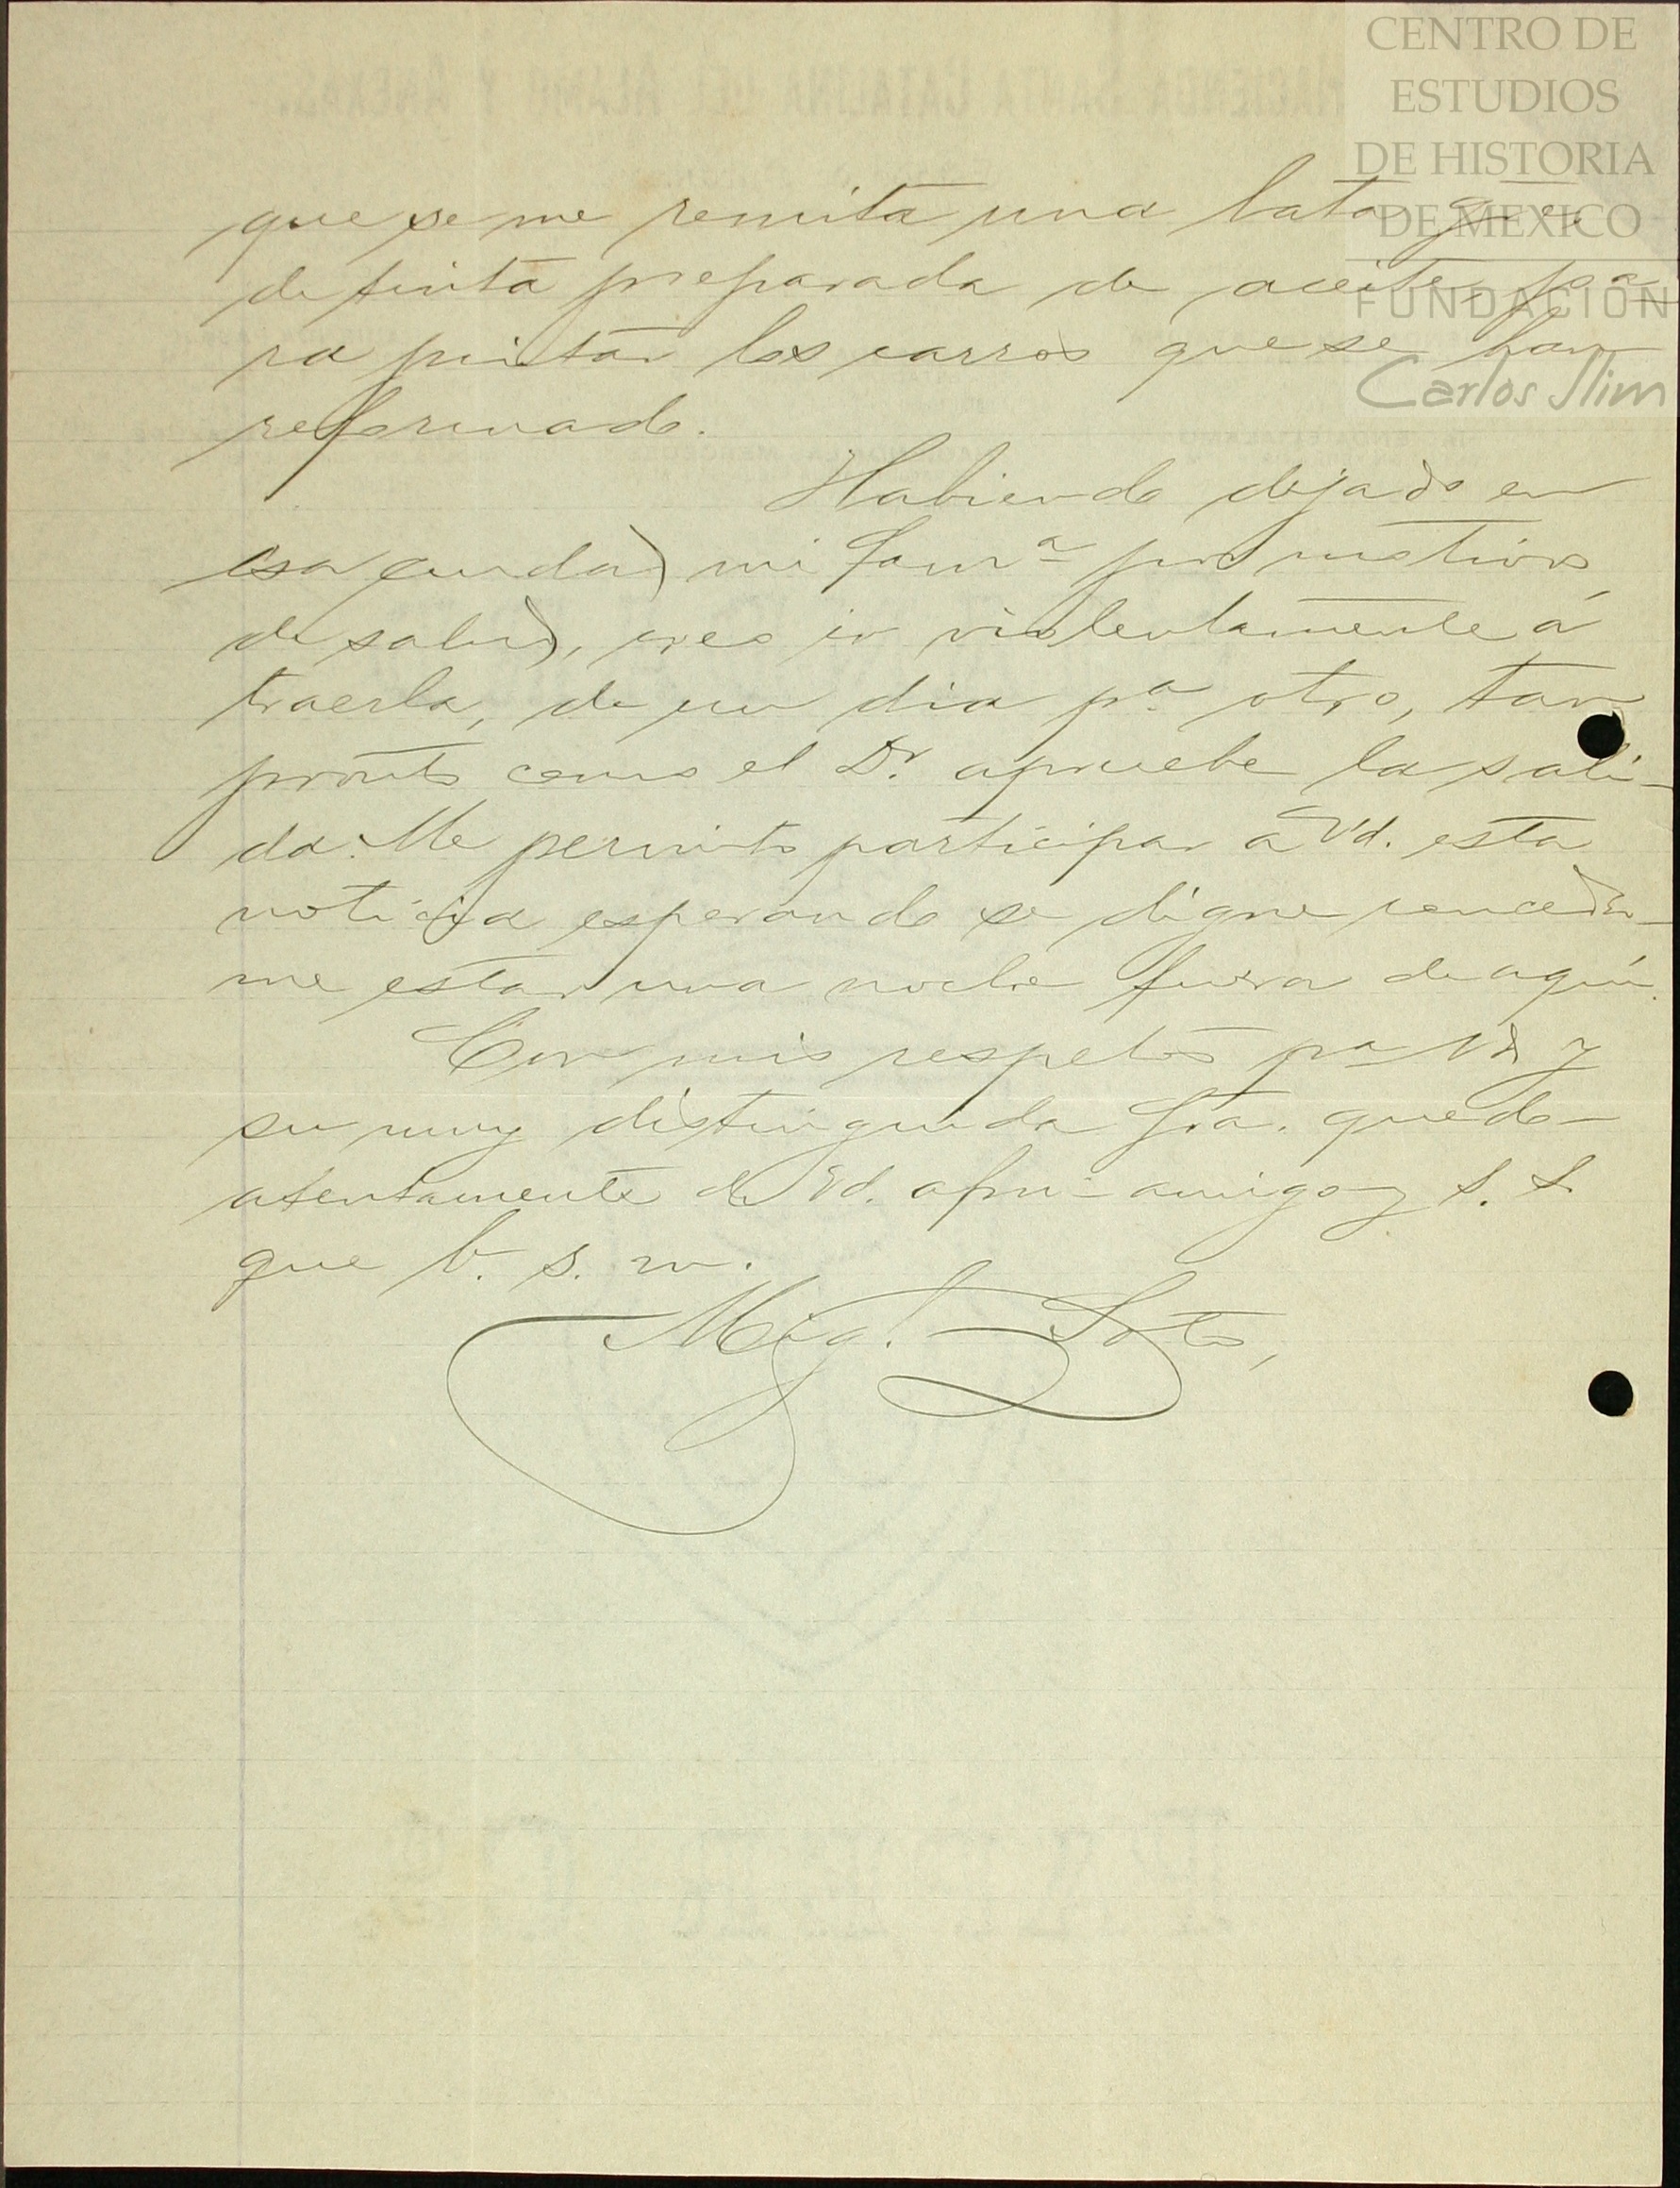 CENTRO DE
ESTUDIOS
DE HISTORIA
DE MEXICO
FUNDACIÓN
Carlos Slim
HACIENDA SANTA CATALINA DEL ALAMO Y ANEXAS.
que se me remita una lata gde.
de tinta preparada de aceite, pa-
ra pintar los carros que se han
reformado.
Habiendo dejado en
esa ciudad mi famª por motivos
de salud, creo ir violentamente á
traerla, de un dia pª otro, tan
pronto como el Dr. apruebe la sali-
da. Me permito participar á Vd. esta
noticia esperando se digne conceder-
me estar una noche fuera de aquí.
Con mis respetos pª Vd y
su muy distinguida fra. quedo
atentamente de Vd. afmo amigo y S. S.
que b. s. m.
Migl. Soto,